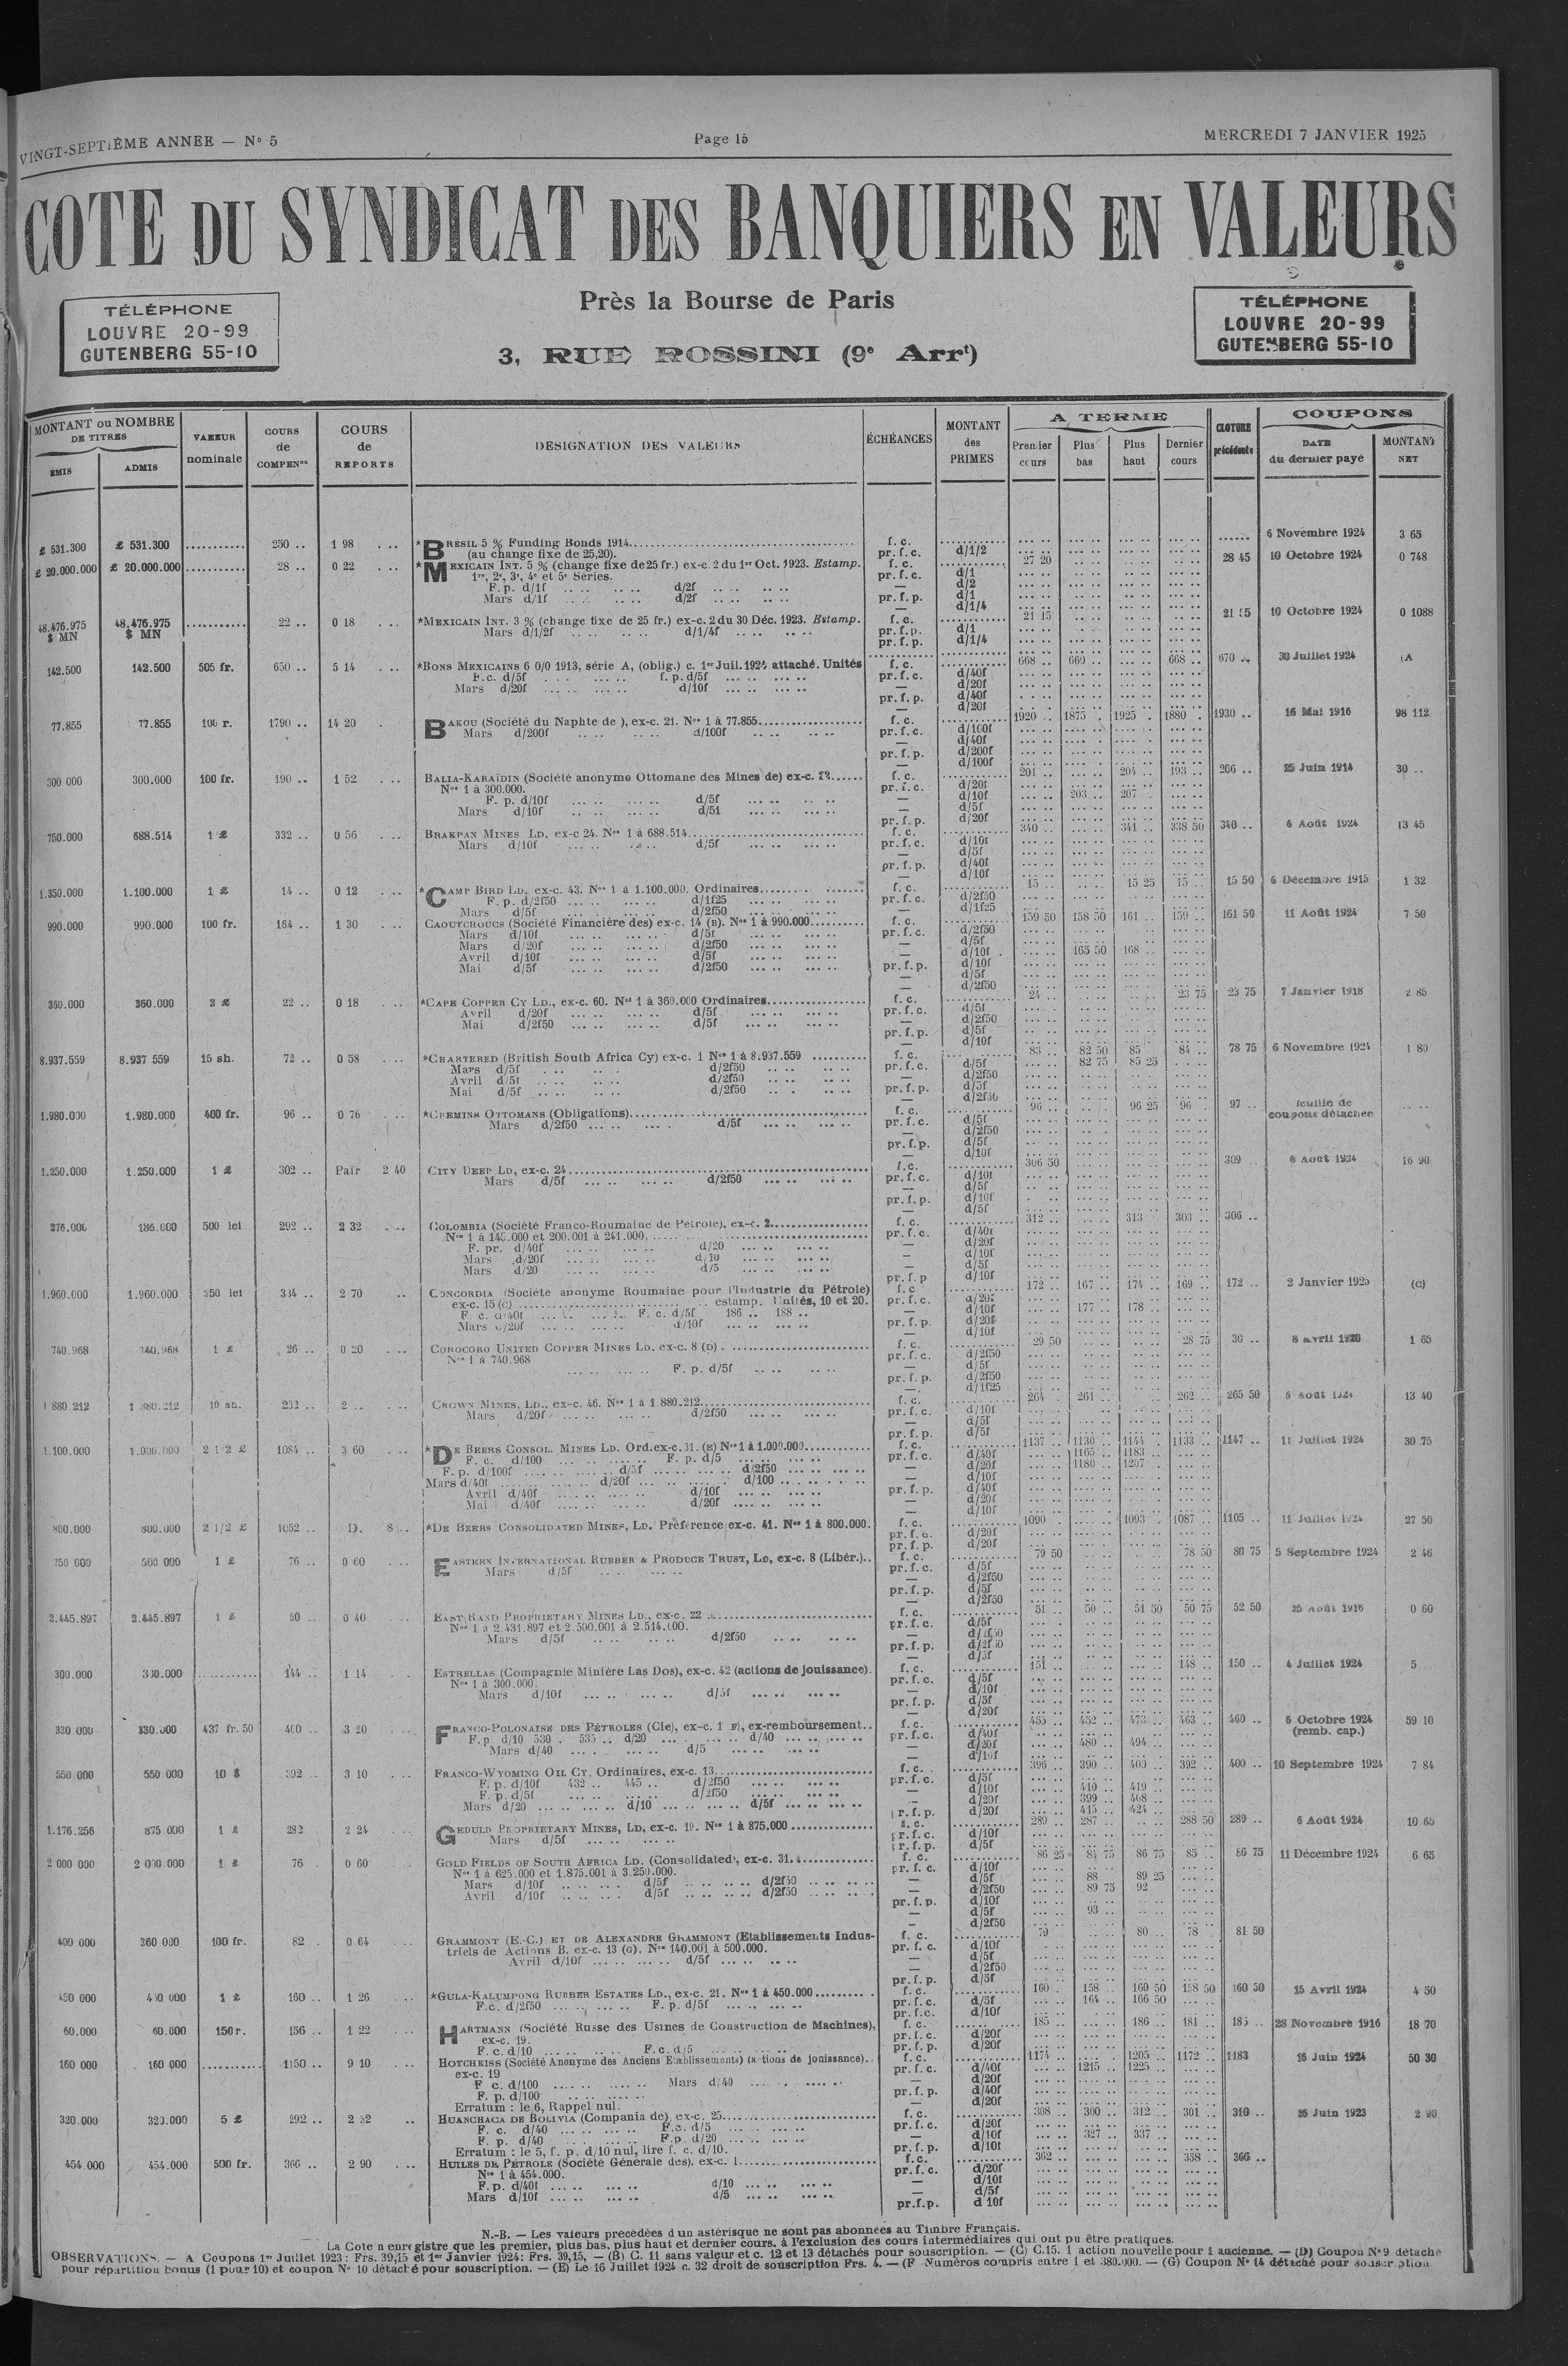 VINGT-SEPTIÈME ANNÉE — N° 5
Page 15
MERCREDI 7 JANVIER 1925
COTE DU SYNDICAT DES BANQUIERS EN VALEURS
Près la Bourse de Paris
3, RUE ROSSINI (9e Arrt)
TÉLÉPHONE
LOUVRE 20-99
GUTENBERG 55-10
TÉLÉPHONE
LOUVRE 20-99
GUTENBERG 55-10
MONTANT ou NOMBRE DE TITRES
ÉMIS
ADMIS
VALEUR nominale
COURS de COMPENon
COURS de REPORTS
DESIGNATION DES VALEURS
ÉCHÉANCES
MONTANT des PRIMES
A TERME
Premier cours
Plus bas
Plus haut
Dernier cours
CLOTURE précédente
COUPONS
DATE du dernier payé
MONTANT NET
£ 531.300 £ 531.300 .......... 250 .. 1 98 * BRESIL 5 % Funding Bonds 1914 f. c. 6 Novembre 1924 3 65
(au change fixe de 25,20). pr. f. c. d/1/2
£ 20.000.000 £ 20.000.000 .......... 28 .. 0 22 * MEXICAIN INT. 5 % (change fixe de 25 fr.) ex-c. 2 du 1er Oct. 1923. Estamp. f. c. 27 20 28 45 10 Octobre 1924 0 748
1re, 2e, 3e, 4e et 5e Séries. pr. f. c. d/1
F. p. d/1f d/2f — d/2
Mars d/1f d/2f pr. f. p. d/1
— d/1/4
48.476.975 $ MN 48.476.975 $ MN .......... 22 .. 0 18 *MEXICAIN INT. 3 % (change fixe de 25 fr.) ex-c. 2 du 30 Déc. 1923. Estamp. f. c. 21 15 10 Octobre 1924 0 1088
Mars d/1/2f d/1/4f pr. f. p. d/1
pr. f. p. d/1/4
142.500 142.500 505 fr. 650 .. 5 14 *BONS MEXICAINS 6 0/0 1913, série A, (oblig.) c. 1er Juil. 1924 attaché. Unités f. c. 668 .. 660 .. 668 .. 670 .. 30 Juillet 1924 (A
F.c. d/5f f. p. d/5f pr. f. c. d/40f
Mars d/20f d/10f — d/20f
pr. f. p. d/40f
— d/20f
77.855 77.855 100 r. 1790 .. 14 20 BAKOU (Société du Naphte de), ex-c. 21. Nos 1 à 77.855 f. c. 1920 .. 1875 . 1925 . 1880 . 1930 .. 16 Mai 1916 98 112
Mars d/200f d/100f pr. f. c. d/100f
— d/40f
pr. f. p. d/200f
— d/100f
300 000 300.000 100 fr. 190 .. 1 52 BALIA-KARAÏDIN (Société anonyme Ottomane des Mines de) ex-c. f. c. 201 .. 204 .. 193 .. 206 .. 25 Juin 1914 30 ..
Nos 1 à 300.000. pr. f. c. d/20f
F. p. d/10f d/5f — d/10f 203 .. 207 ..
Mars d/10f d/5f — d/5f
pr. f. p. d/20f
750.000 688.514 1 £ 332 .. 0 56 BRAKPAN MINES LD. ex-c 24. Nos 1 à 688.514 f. c. 340 .. 341 .. 338 50 340 .. 6 Août 1924 13 45
Mars d/10f d/5f pr. f. c. d/10f
— d/5f
pr. f. p. d/40f
— d/10f
1.350.000 1.100.000 1 £ 14 .. 0 12 * CAMP BIRD LD, ex-c. 43. Nos 1 à 1.100.000. Ordinaires f. c. 15 .. 15 25 15 .. 15 50 6 Décembre 1915 1 32
F. p. d/2f50 d/1f25 pr. f. c. d/2f50
Mars d/5f d/2f50 — d/1f25
990.000 990.000 100 fr. 164 .. 1 30 CAOUTCHOUCS (Société Financière des) ex-c. 14 (B). Nos 1 à 990.000 f. c. 159 50 158 50 161 .. 159 .. 161 50 11 Août 1924 7 50
Mars d/10f d/5f pr. f. c. d/2f50
Mars d/20f d/2f50 — d/5f
Avril d/10f d/5f — d/10f 165 50 168 ..
Mai d/5f d/2f50 pr. f. p. d/10f
— d/5f
— d/2f50
360.000 360.000 2 £ 22 .. 0 18 *CAPE COPPER CY LD., ex-c. 60. Nos 1 à 360.000 Ordinaires f. c. 24 .. 23 75 23 75 7 Janvier 1918 2 85
Avril d/20f d/5f pr. f. c. d/5f
Mai d/2f50 d/5f — d/2f50
pr. f. p. d/5f
— d/10f
8.937.559 8.937 559 15 sh. 72 .. 0 58 *CHARTERED (British South Africa Cy) ex-c. 1 Nos 1 à 8.937.559 f. c. 83 .. 82 50 85 84 .. 78 75 6 Novembre 1924 1 80
Mars d/5f d/2f50 pr. f. c. d/5f 82 75 85 25
Avril d/5f d/2f50 — d/2f50
Mai d/5f d/2f50 pr. f. p. d/5f
— d/2f50
1.980.000 1.980.000 400 fr. 96 .. 0 76 *CHEMINS OTTOMANS (Obligations) f. c. 96 .. 96 25 96 97 .. feuille de coupons détachée
Mars d/2f50 d/5f pr. f. c. d/5f
— d/2f50
pr. f. p. d/5f
— d/10f
1.250.000 1.250.000 1 £ 302 .. Pair 2 40 CITY DEEP LD, ex-c. 24 f.c. 306 50 309 6 Août 1924 16 90
Mars d/5f d/2f50 pr. f. c. d/10f
— d/5f
pr. f. p. d/10f
— d/5f
186.000 500 lei 292 .. 2 32 COLOMBIA (Société Franco-Roumaine de Pétrole), ex-c. 2 f. c. 312 .. 313 303 .. 306 ..
Nos 1 à 145.000 et 200.001 à 241.000. pr. f. c. d/40f
F. pr. d/40f d/20 — d/20f
Mars d/20f d/10 — d/10f
Mars d/20 d/5 — d/5f
pr. f. p d/10f
1.960.000 1.960.000 250 lei 344 .. 2 70 CONCORDIA (Société anonyme Roumaine pour l'Industrie du Pétrole) f. c 172 .. 167 .. 174 .. 169 .. 172 .. 2 Janvier 1925 (C)
ex-c. 15 (C) estamp. Unités, 10 et 20. pr. f. c. d/20f
F. c. d/40f F. c. d/5f 186 .. 188 .. — d/10f 177 .. 178 ..
Mars d/20f d/10f pr. f. p. d/20f
— d/10f
740.968 740.968 1 £ 26 .. 0 20 COROCORO UNITED COPPER MINES LD. ex-c. 8 (D) f. c. 29 50 28 75 30 .. 8 Avril 1920 1 65
Nos 1 à 740.968 pr. f. c. d/2f50
F. p. d/5f — d/5f
pr. f. p. d/2f50
— d/1f25
1 880 212 1 880.212 10 sh. 252 .. 2 .. CROWN MINES, LD., ex-c. 46. Nos 1 à 1.880.212 f. c. 264 261 .. 262 .. 265 50 6 Août 1924 13 40
Mars d/20f d/2f50 pr. f. c. d/10f
— d/5f
pr. f. p. d/5f
1.100.000 1.000.000 2 1/2 £ 1084 .. 3 60 * DE BEERS CONSOL. MINES LD. Ord. ex-c. 31. (E) Nos 1 à 1.000.000 f. c. 1137 .. 1130 .. 1144 .. 1133 .. 1147 .. 11 Juillet 1924 30 75
F. c. d/100 F. p. d/5 pr. f. c. d/40f 1165 .. 1183 ..
F. p. d/100f d/5f d/2f50 — d/20f 1180 .. 1207 ..
Mars d/40f d/20f d/100 — d/10f
Avril d/40f d/10f pr. f. p. d/40f
Mai d/40f d/20f — d/20f
— d/10f
800.000 800.000 2 1/2 £ 1052 .. D. *DE BEERS CONSOLIDATED MINES, LD. Préférence ex-c. 41. Nos 1 à 800.000. f. c. 1090 .. 1093 .. 1087 .. 1105 .. 11 Juillet 1924 27 50
pr. f. c. d/20f
pr. f. p. d/20f
750 000 500 000 1 £ 76 .. 0 60 EASTERN INTERNATIONAL RUBBER & PRODUCE TRUST, LD, ex-c. 8 (Libér.) f. c. 79 50 78 50 80 75 5 Septembre 1924 2 46
Mars d/5f pr. f. c. d/5f
— d/2f50
pr. f. p. d/5f
— d/2f50
2.445.897 2.445.897 1 £ 50 .. 0 40 EAST RAND PROPRIETARY MINES LD., ex-c. 22 f. c. 51 50 .. 51 50 50 75 52 50 25 Août 1916 0 60
Nos 1 à 2.431.897 et 2.500.001 à 2.514.000. pr. f. c. d/5f
Mars d/5f d/2f50 — d/2f50
pr. f. p. d/2f50
— d/5f
300.000 300.000 .......... 144 .. 1 14 ESTRELLAS (Compagnie Minière Las Dos), ex-c. 42 (actions de jouissance). f. c. 151 .. 148 .. 150 .. 4 Juillet 1924 5
Nos 1 à 300.000. pr. f. c. d/5f
Mars d/10f d/5f — d/10f
pr. f. p. d/5f
— d/20f
330 000 330.000 437 fr. 50 400 .. 3 20 FRANCO-POLONAISE DES PÉTROLES (Cie), ex-c. 1 F), ex-remboursement f. c. 455 .. 452 .. 473 .. 463 .. 460 .. 6 Octobre 1924 (remb. cap.) 59 10
F. p. d/10 530 . 535 .. d/20 d/40 pr. f. c. d/40f
Mars d/40 d/5 — d/20f 480 .. 494 ..
— d/10f
550.000 550 000 10 $ 392 .. 3 10 FRANCO-WYOMING OIL CY, Ordinaires, ex-c. 13 f. c. 396 .. 390 .. 400 .. 392 .. 400 .. 10 Septembre 1924 7 84
F. p. d/10f 432 .. 445 .. d/2f50 pr. f. c. d/5f
F. p. d/5f d/2f50 — d/10f 410 .. 419 ..
Mars d/20 d/10 d/5f — d/20f 399 .. 408 ..
pr. f. p. d/20f 415 .. 424 ..
1.176.256 875.000 1 £ 282 2 24 GEDULD PROPRIETARY MINES, LD, ex-c. 19. Nos 1 à 875.000 f. c. 289 .. 287 .. 288 50 289 .. 6 Août 1924 10 65
Mars d/5f pr. f. c. d/10f
pr. f. p. d/5f
2 000 000 2 000.000 1 £ 76 . 0 60 GOLD FIELDS OF SOUTH AFRICA LD. (Consolidated), ex-c. 31 f. c. 86 25 84 75 86 75 85 .. 86 75 11 Décembre 1924 6 65
Nos 1 à 625.000 et 1.875.001 à 3.250.000. pr. f. c. d/10f
Mars d/10f d/5f d/2f50 — d/5f 88 89 25
Avril d/10f d/5f d/2f50 — d/2f50 89 75 92
pr. f. p. d/10f
— d/5f 93 ..
— d/2f50
400 000 360 000 100 fr. 82 . 0 64 GRAMMONT (E.-C.) ET DE ALEXANDRE GRAMMONT (Etablissements Indus- f. c. 79 80 .. 78 81 50
triels de Actions B, ex-c. 13 (G). Nos 140.001 à 500.000. pr. f. c. d/10f
Avril d/10f d/5f — d/5f
— d/2f50
pr. f. p. d/5f
450 000 450 000 1 £ 160 .. 1 26 *GULA-KALUMPONG RUBBER ESTATES LD., ex-c. 21. Nos 1 à 450.000 f. c. 160 . 158 .. 160 50 158 50 160 50 15 Avril 1924 4 50
F.c. d/2f50 F. p. d/5f pr. f. c. d/5f 164 .. 166 50
pr. f. c. d/10f
60.000 60.000 150 r. 156 .. 1 22 HARTMANN (Société Russe des Usines de Construction de Machines), f. c. 185 .. 186 .. 181 .. 185 .. 28 Novembre 1916 18 70
ex-c. 19. pr. f. c. d/20f
F. c. d/10 F. c. d/5 pr. f. p. d/20f
160 000 160 000 .......... 1150 .. 9 10 HOTCHKISS (Société Anonyme des Anciens Etablissements) (actions de jouissance) f. c. 1174 .. 1205 .. 1172 .. 1183 15 Juin 1924 50 30
ex-c. 19 pr. f. c. d/40f 1215 .. 1225 ..
F c. d/100 Mars d/40 — d/20f
F. p. d/100 pr. f. p. d/40f
Erratum : le 6, Rappel nul. — d/20f
320.000 320.000 5 £ 292 .. HUANCHACA DE BOLIVIA (Compania de) ex-c. 25 f. c. 308 .. 300 .. 312 .. 301 .. 310 .. 25 Juin 1923 2 90
F. c. d/40 F.c. d/5 pr. f. c. d/20f
F. p. d/40 F.p. d/20 — d/10f 327 .. 337 ..
Erratum : le 5, f. p. d/10 nul, lire f. c. d/10. pr. f. p. d/10f
454.000 454.000 500 fr. 366 .. 2 90 HUILES DE PÉTROLE (Société Générale des). ex-c. 1 f. c. 362 .. 358 .. 366 ..
Nos 1 à 454.000. pr. f. c. d/20f
F. p. d/40f d/10 — d/10f
Mars d/10f d/5 — d/5f
pr.f.p. d 10f
N.-B. — Les valeurs précédées d'un astérisque ne sont pas abonnées au Timbre Français.
La Cote n'enregistre que les premier, plus bas, plus haut et dernier cours, à l'exclusion des cours intermédiaires qui ont pu être pratiques.
OBSERVATIONS. — A Coupons 1er Juillet 1923 : Frs. 39,15 et 1er Janvier 1924 : Frs. 39,15, — (B) C. 11 sans valeur et c. 12 et 13 détachés pour souscription. — (C) C.15. 1 action nouvelle pour 1 ancienne. — (D) Coupon N° 9 détaché
pour répartition bonus (1 pour 10) et coupon N° 10 détaché pour souscription. — (E) Le 16 Juillet 1924 c. 32 droit de souscription Frs. 4. — (F Numéros compris entre 1 et 380.000. — (G) Coupon N° 14 détaché pour souscription